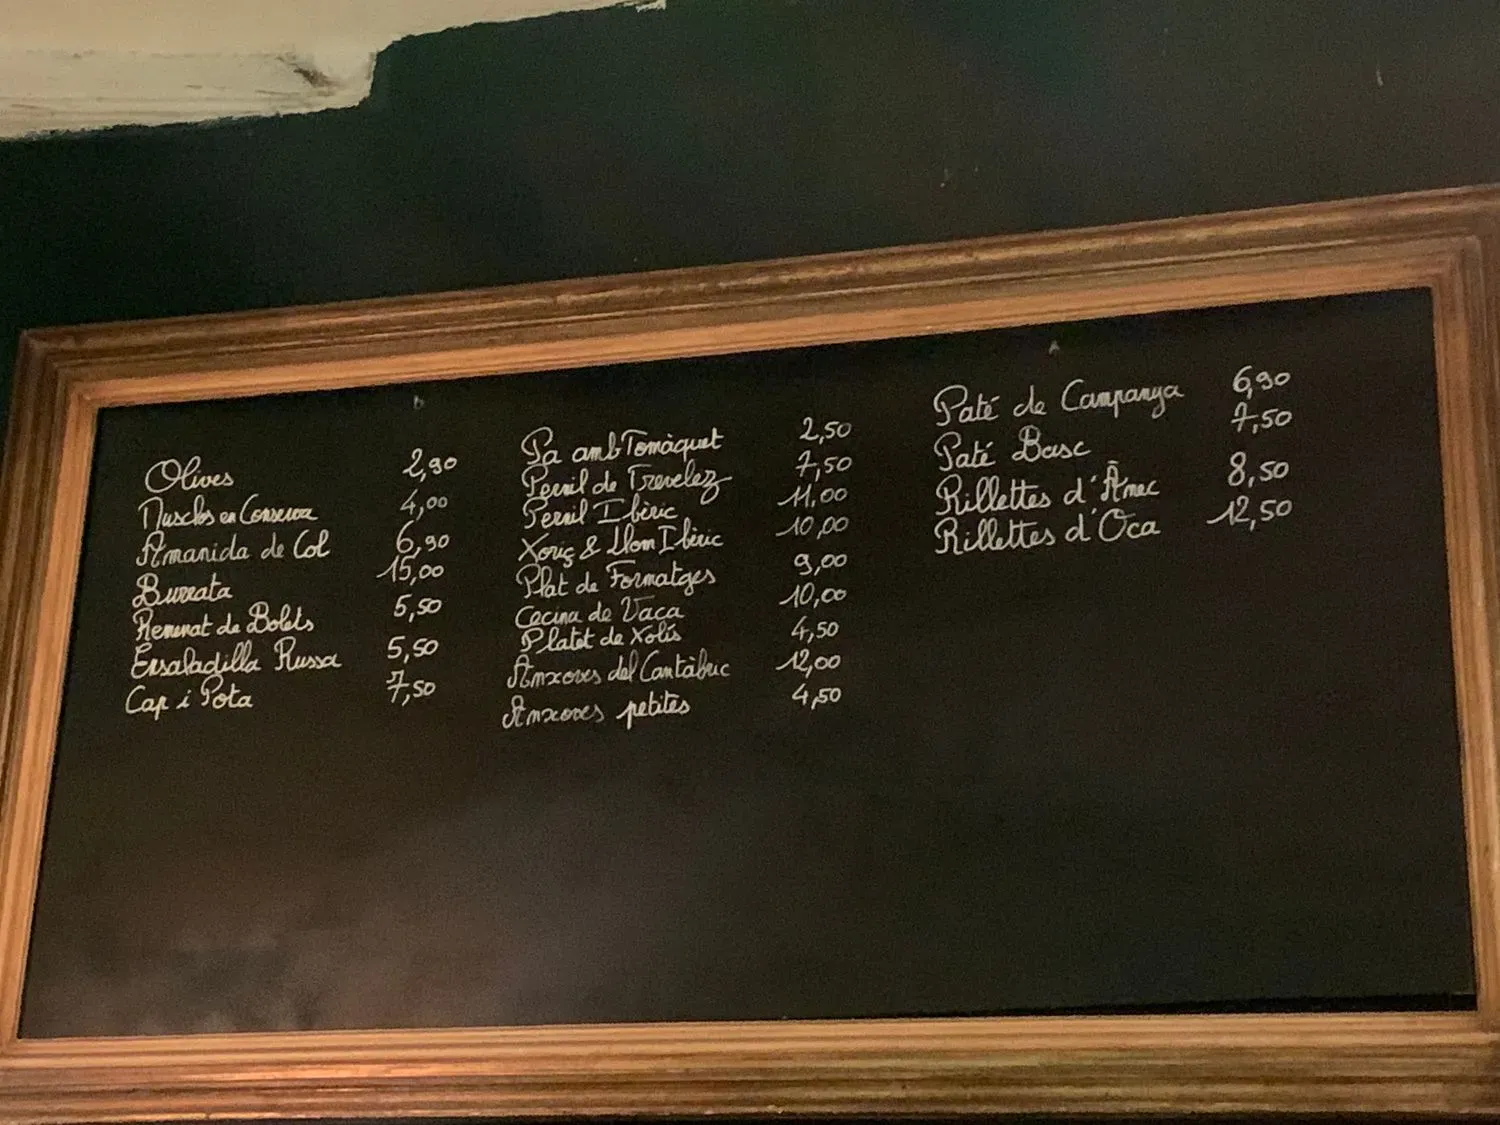 Olives 2,90
Musclos en Conserva 4,00
Amanida de Col 6,90
Burrata 15,00
Remenat de Bolets 5,50
Ensaladilla Russa 5,50
Cap i Pota 7,50
Pa amb Tomàquet 2,50
Pernil de Trevelez 7,50
Pernil Ibèric 11,00
Xoriç & Llom Ibèric 10,00
Plat de Formatges 9,00
Cecina de Vaca 10,00
Platet de Xolís 4,50
Anxoves del Cantàbric 12,00
Anxoves petites 4,50
Paté de Campanya 6,90
Paté Basc 7,50
Rillettes d'Ànec 8,50
Rillettes d'Oca 12,50